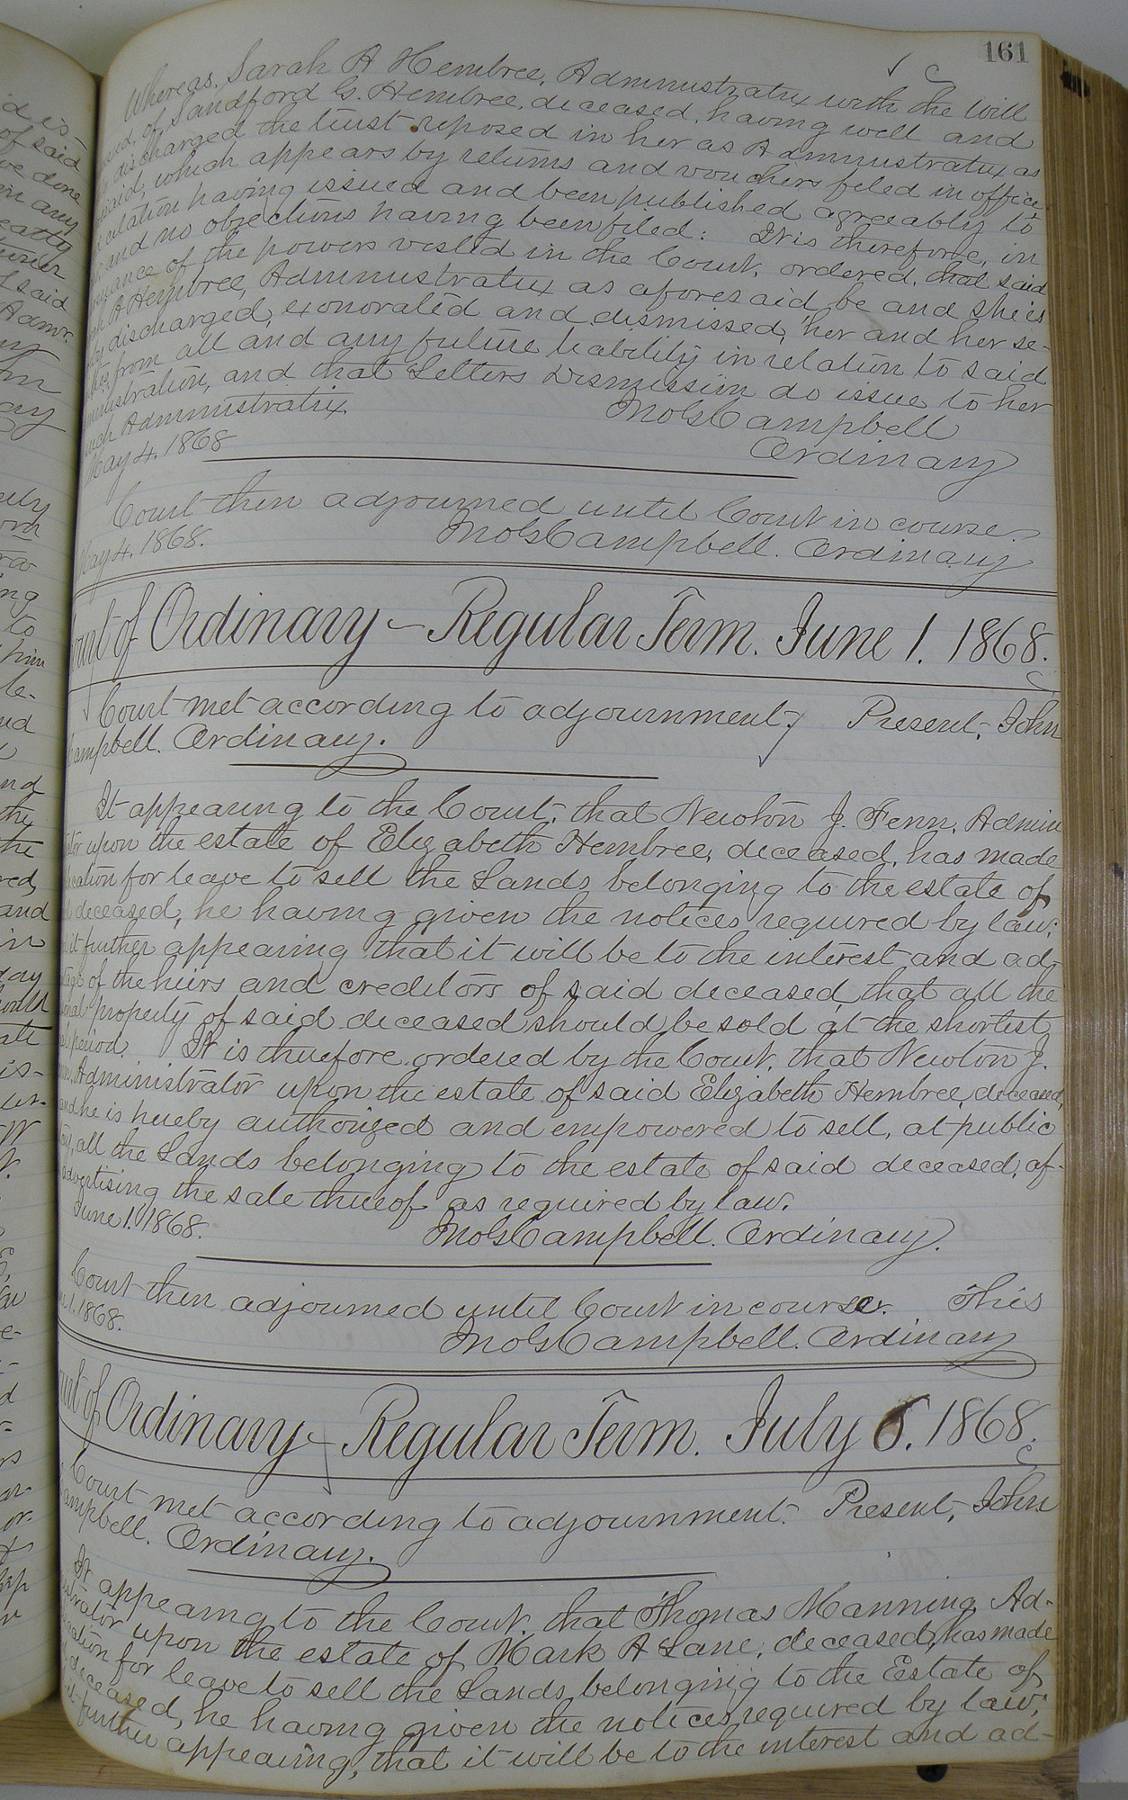 161
Whereas, Sarah A Hembree, Administratrix with the Will
of Sandford G. Hembree, deceased, having well and
discharged the trust reposed in her as Administratrix as
which appears by returns and vouchers filed in office,
having issued and been published agreeably to
and no objections having been filed: It is therefore, in
of the powers vested in the Court, ordered, that said
A Hembree, Administratrix as aforesaid be and she is
discharged, exonorated and dismissed, her and her se-
from all and any future liability in relation to said
and that Letters Dismission do issue to her
such Administratrix.
May 4. 1868
Jno G Campbell
Ordinary
Court then adjourned until Court in course.
May 4. 1868.
Jno G Campbell. Ordinary
Court of Ordinary – Regular Term. June 1. 1868.
Court met according to adjournment; Present, John
Campbell. Ordinary.
It appearing to the Court, that Newton J. Fenn, Admin
upon the estate of Elizabeth Hembree, deceased, has made
for leave to sell the Lands belonging to the estate of
deceased, he having given the notices required by law;
it further appearing that it will be to the interest and ad-
of the heirs and creditors of said deceased that all the
property of said deceased should be sold at the shortest
period. It is therefore ordered by the Court, that Newton J.
Administrator upon the estate of said Elizabeth Hembree, deceased,
and he is hereby authorized and empowered to sell, at public
all the Lands belonging to the estate of said deceased, af-
advertising the sale thereof as required by law.
June 1. 1868.
Jno G Campbell. Ordinary.
Court then adjourned until Court in course. This
1. 1868.
Jno G Campbell. Ordinary
Court of Ordinary – Regular Term. July 6. 1868.
Court met according to adjournment. Present, John
Campbell. Ordinary.
It appearing to the Court, that Thomas Manning Ad-
upon the estate of Mark A Lane, deceased, has made
for leave to sell the Lands belonging to the Estate of
deceased, he having given the notices required by law;
further appearing, that it will be to the interest and ad-